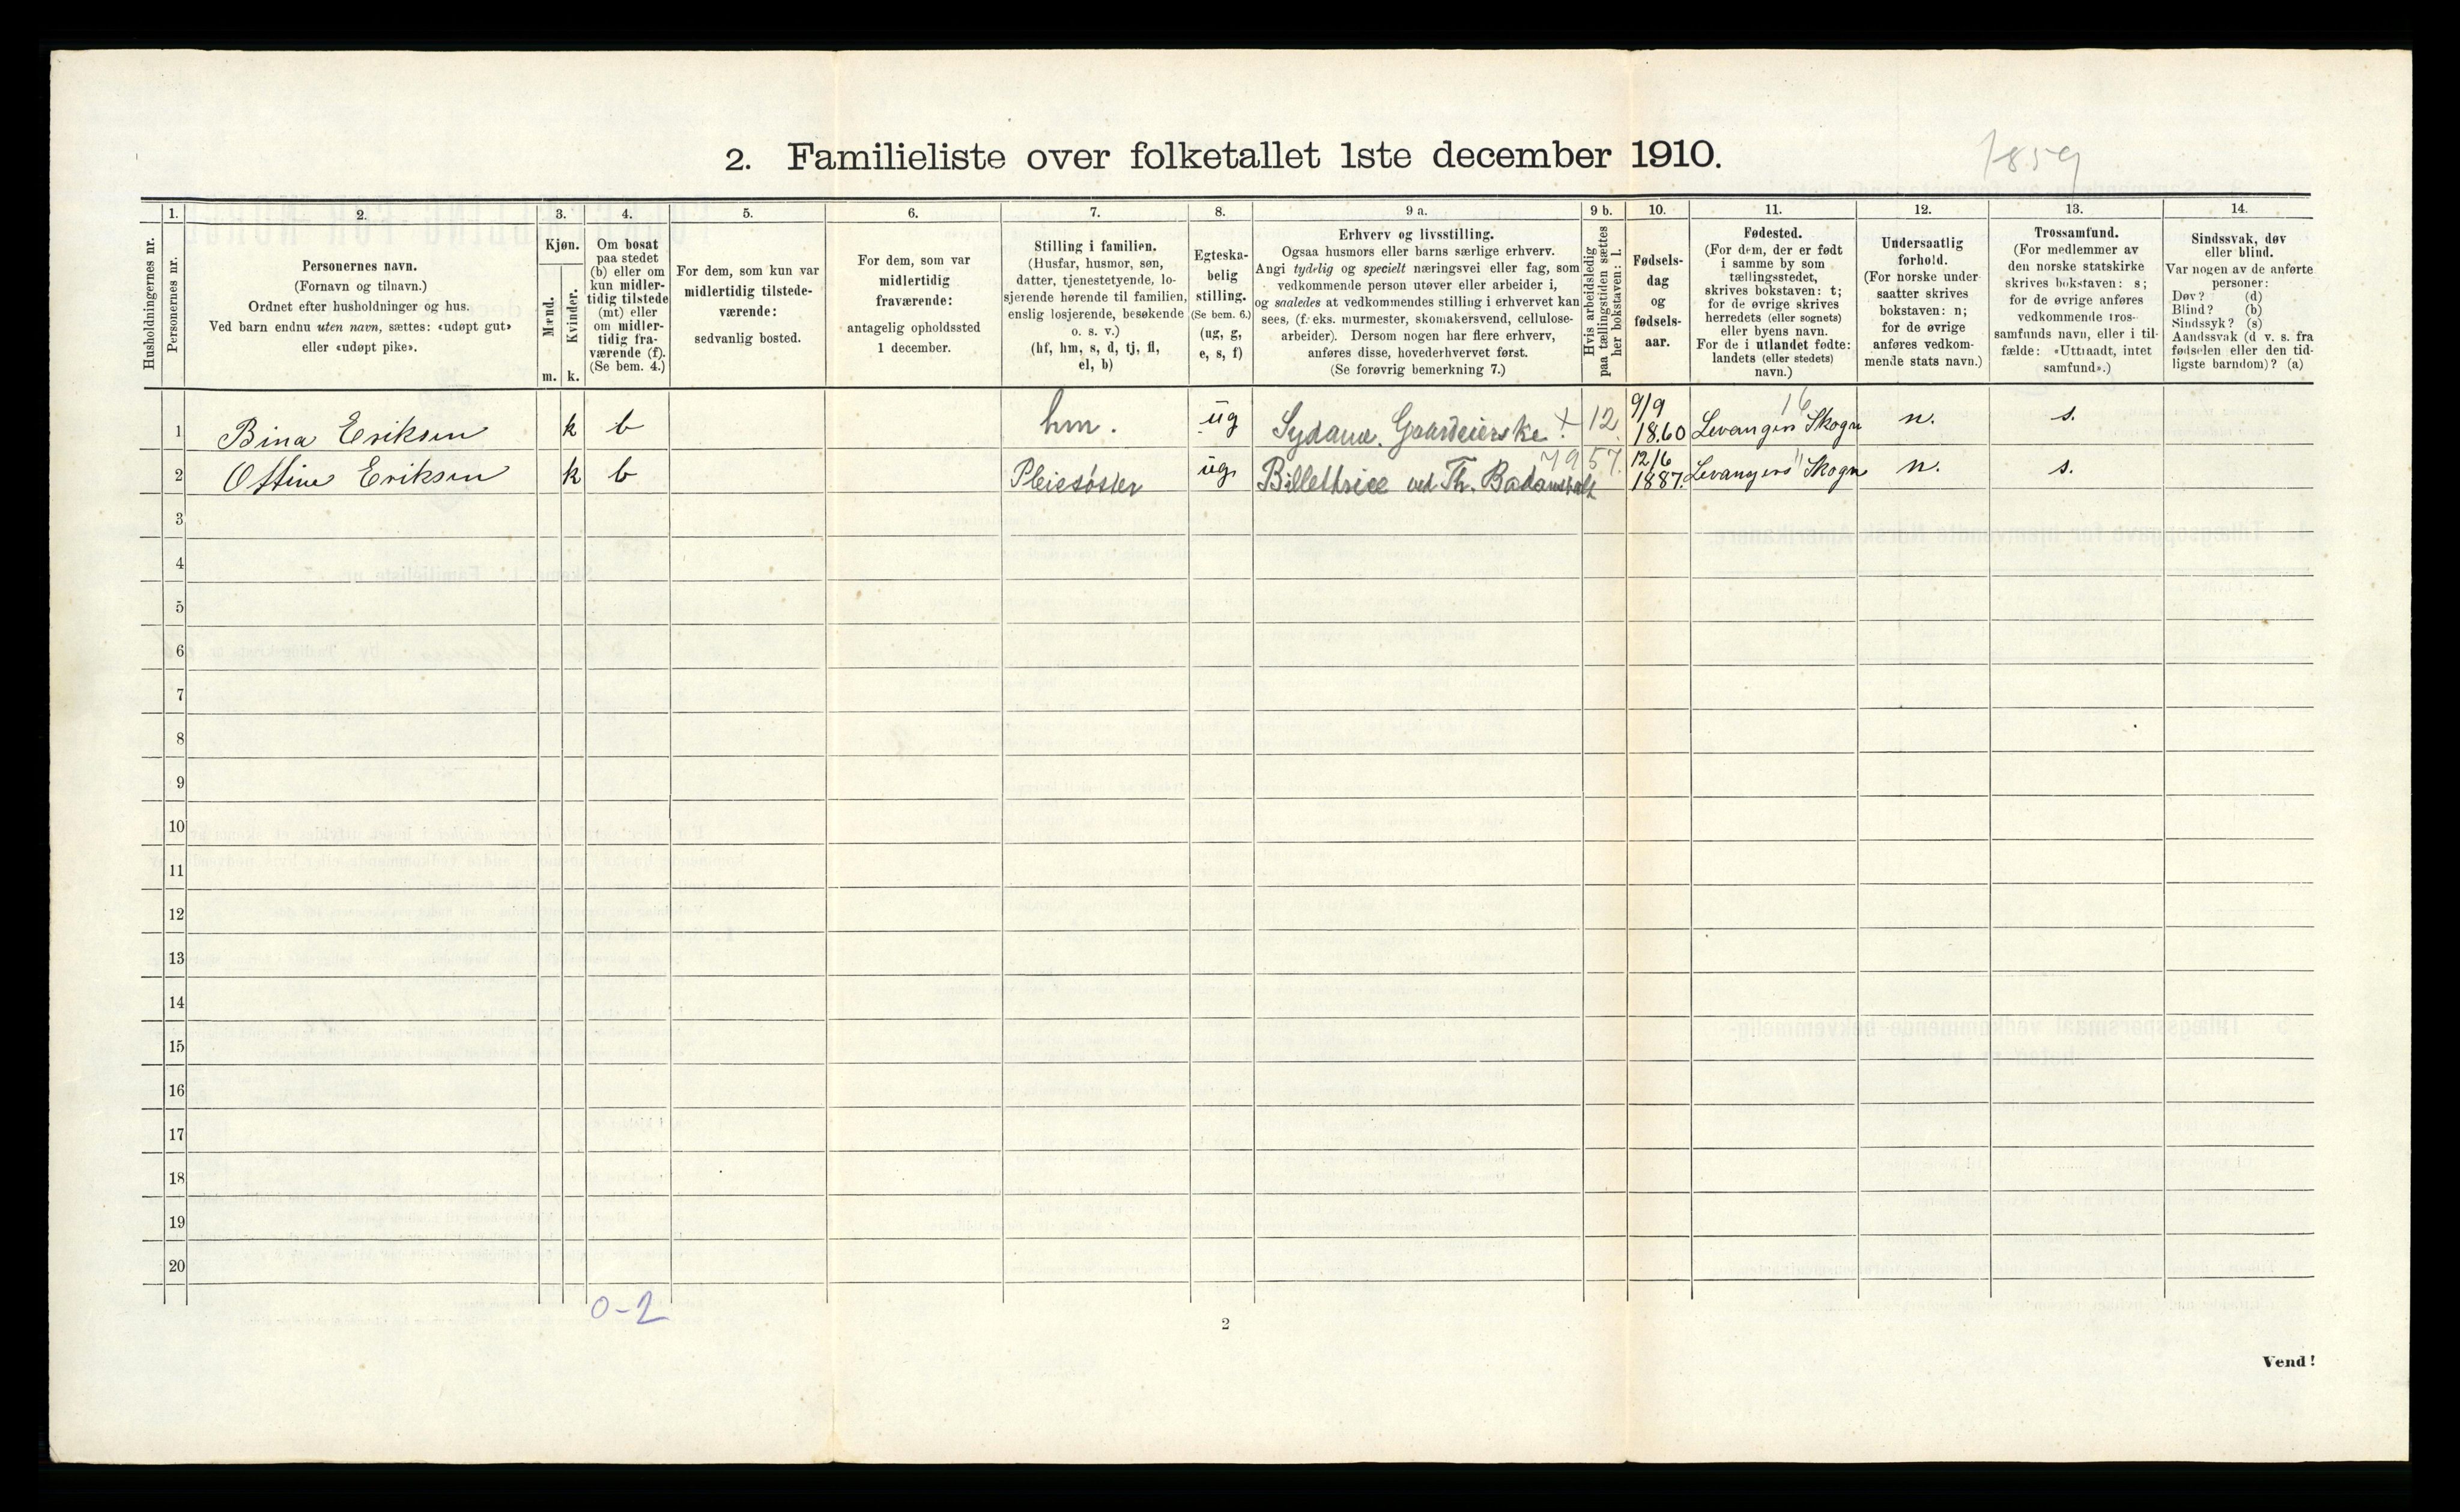 1859
2. Familieliste over folketallet 1ste december 1910.
Husholdningernes nr.
1. Personernes nr.
2.
Personernes navn.
(Fornavn og tilnavn.)
Ordnet efter husholdninger og hus.
Ved barn endnu uten navn, sættes: «udøpt gut»
eller «udøpt pike».
3.
Kjøn.
Mænd. m.
Kvinder. k.
4.
Om bosat
paa stedet
(b) eller om
kun midler-
tidig tilstede
(mt) eller
om midler-
tidig fra-
værende (f).
(Se bem. 4.)
5.
For dem, som kun var
midlertidig tilstede-
værende:
sedvanlig bosted.
6.
For dem, som var
midlertidig
fraværende:
antagelig opholdssted
1 december.
7.
Stilling i familien.
(Husfar, husmor, søn,
datter, tjenestetyende, lo-
sjerende hørende til familien,
enslig losjerende, besøkende
o. s. v.)
(hf, hm, s, d, tj, fl,
el, b)
8.
Egteska-
belig
stilling.
(Se bem. 6.)
(ug, g,
e, s, f)
9 a.
Erhverv og livsstilling.
Ogsaa husmors eller barns særlige erhverv.
Angi tydelig og specielt næringsvei eller fag, som
vedkommende person utøver eller arbeider i,
og saaledes at vedkommendes stilling i erhvervet kan
sees, (f. eks. murmester, skomakersvend, cellulose-
arbeider). Dersom nogen har flere erhverv,
anføres disse, hovederhvervet først.
(Se forøvrig bemerkning 7.)
9 b.
Hvis arbeidsledig
paa tællingstiden sættes
her bokstaven: l.
10.
Fødsels-
dag
og
fødsels-
aar.
11.
Fødested.
(For dem, der er født
i samme by som
tællingsstedet,
skrives bokstaven: t;
for de øvrige skrives
herredets (eller sognets)
eller byens navn.
For de i utlandet fødte:
landets (eller stedets)
navn.)
12.
Undersaatlig
forhold.
(For norske under-
saatter skrives
bokstaven: n;
for de øvrige
anføres vedkom-
mende stats navn.)
13.
Trossamfund.
(For medlemmer av
den norske statskirke
skrives bokstaven: s;
for de øvrige anføres
vedkommende tros-
samfunds navn, eller i til-
fælde: «Uttraadt, intet
samfund».)
14.
Sindssvak, døv
eller blind.
Var nogen av de anførte
personer:
Døv? (d)
Blind? (b)
Sindssyk? (s)
Aandssvak (d v. s. fra
fødselen eller den tid-
ligste barndom)? (a)
1 Bina Eriksen k b hm. ug Sydame. Gaardeierske + 12. 9/9 1860 Levangers Skogn 16 n. s.
2 Ottine Eriksen k b Pleiesøster ug Billettrice ved Th. Badeanstalt 7957. 12/6 1887. Levangers Skogn " n. s.
3
4
5
6
7
8
9
10
11
12
13
14
15
16
17
18
19
20
0-2
2
Vend!